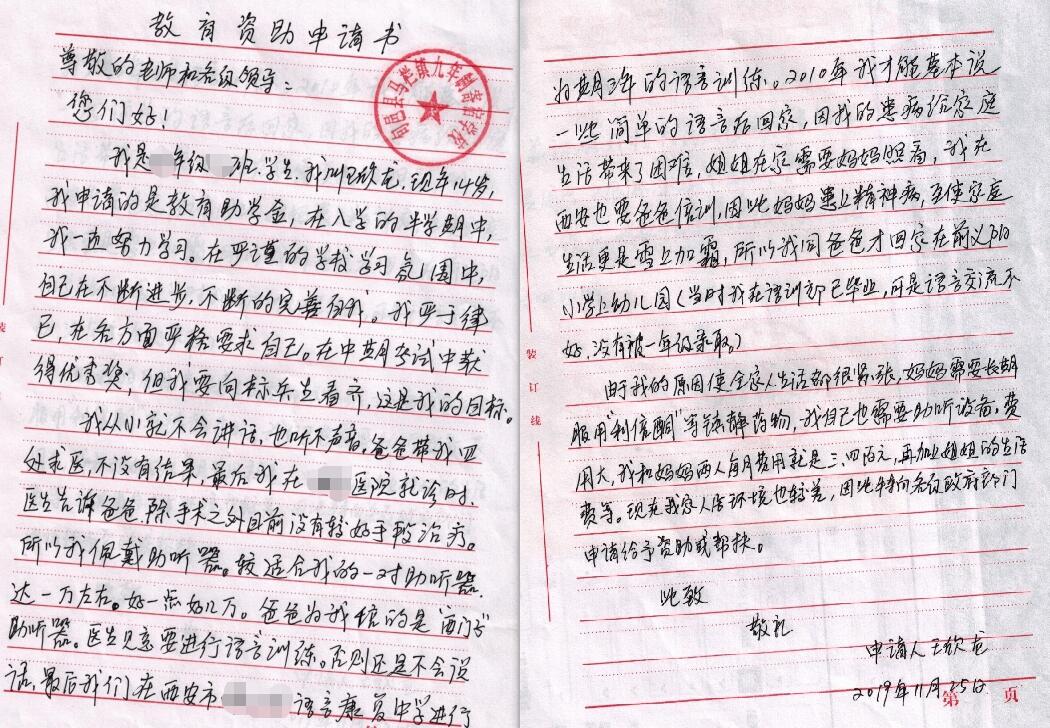 教育资助申请书
尊敬的老师和各级领导：
您们好！
我是 年级 班学生,我叫王欣龙,现年14岁,
我申请的是教育助学金，在入学的半学期中,
我一直努力学习。在严谨的学校学习氛围中,
自己在不断进步,不断的完善自我。我严于律
己,在各方面严格要求自己。在中期考试中获
得优秀奖,但我要向标兵生看齐,这是我的目标。
我从小就不会讲话,也听不声音。爸爸带我四
处求医不没有结果,最后我在 医院就诊时.
医生告诉爸爸,除手术之外目前没有较好手段治疗。
所以我佩戴助听器。较适合我的一对助听器.
达一万左右。好一点好几万。爸爸为我 的是"西门子"
助听器。医生 要进行语言训练。否则还是不会说
话,最后我们在西安市 语言康复中学进行
为期三年的语言训练。2010年我才能基本说
一些简单的语言后回家,因我的患病给家庭
生活带来了困难,姐姐在家需要妈妈照看,我在
西安也要爸爸 训,因此妈妈患上精神病,至使家庭
生活更是雪上加霜,所以我同爸爸才回家在前义阳
小学上幼儿园(当时我在语训部已毕业,可是语言交流不
好,没有被一年级录取。)
由于我的原因使全家人生活都很紧张,妈妈需要长期
服用"利培酮"等镇静药物,我自己也需要助听设备。费
用大,我和妈妈两人每月费用就是三、四佰元,再加上姐姐的生活
费等。现在我家人居环境也较差,因此特向各级政府部门
申请给予资助或帮扶。
此致
敬礼
申请人王欣龙
2019年11月25日
第 页
装
订
线
旬邑县马栏镇九年制寄宿学校